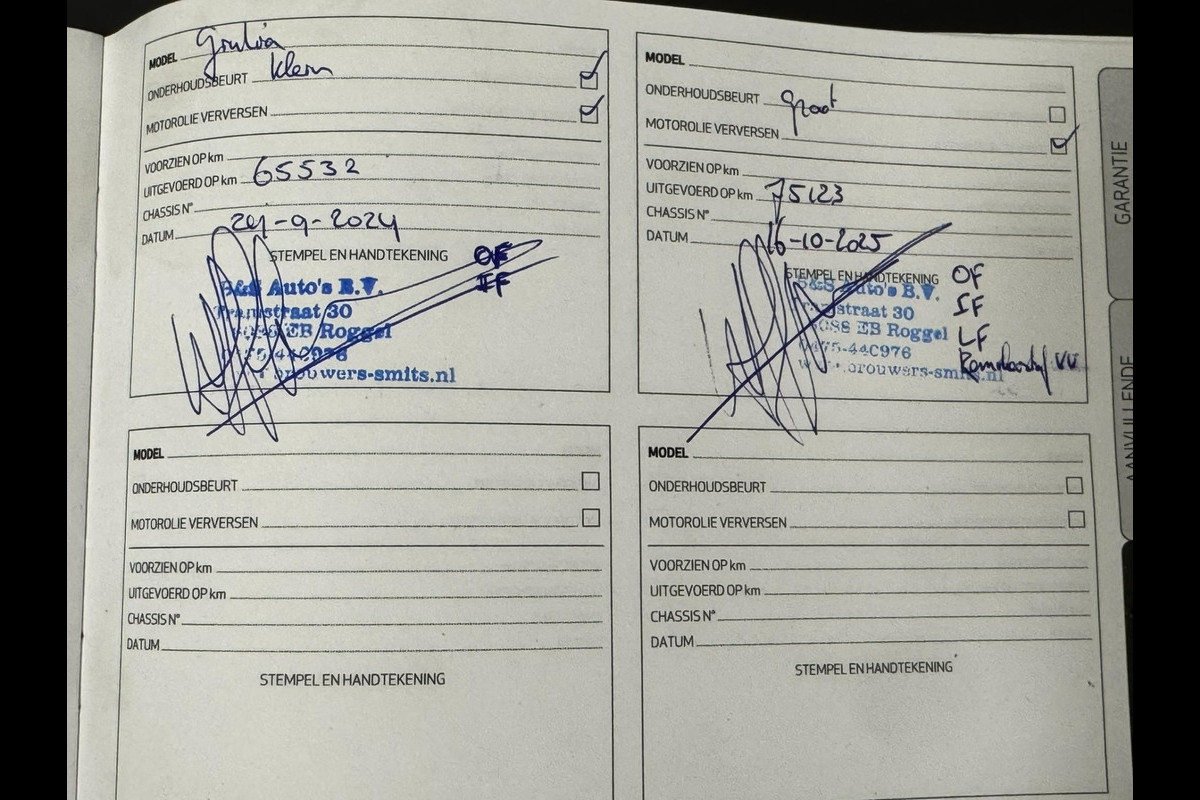 MODEL Giulia
ONDERHOUDSBEURT Klein
MOTOROLIE VERVERSEN
VOORZIEN OP km
UITGEVOERD OP km 65532
CHASSIS Nº
DATUM 24-9-2024
STEMPEL EN HANDTEKENING OF
IF
B&S Auto's B.V.
straat 30
6088 EB Roggel
0475-440976
brouwers-smits.nl
MODEL
ONDERHOUDSBEURT groot
MOTOROLIE VERVERSEN
VOORZIEN OP km
UITGEVOERD OP km 75123
CHASSIS Nº
DATUM 16-10-2025
STEMPEL EN HANDTEKENING OF
IF
LF
B&S Auto's B.V.
straat 30
6088 EB Roggel
0475-440976
Remvloeistof VV
brouwers-smits.nl
MODEL
ONDERHOUDSBEURT
MOTOROLIE VERVERSEN
VOORZIEN OP km
UITGEVOERD OP km
CHASSIS Nº
DATUM
STEMPEL EN HANDTEKENING
MODEL
ONDERHOUDSBEURT
MOTOROLIE VERVERSEN
VOORZIEN OP km
UITGEVOERD OP km
CHASSIS Nº
DATUM
STEMPEL EN HANDTEKENING
GARANTIE
AANVULLENDE